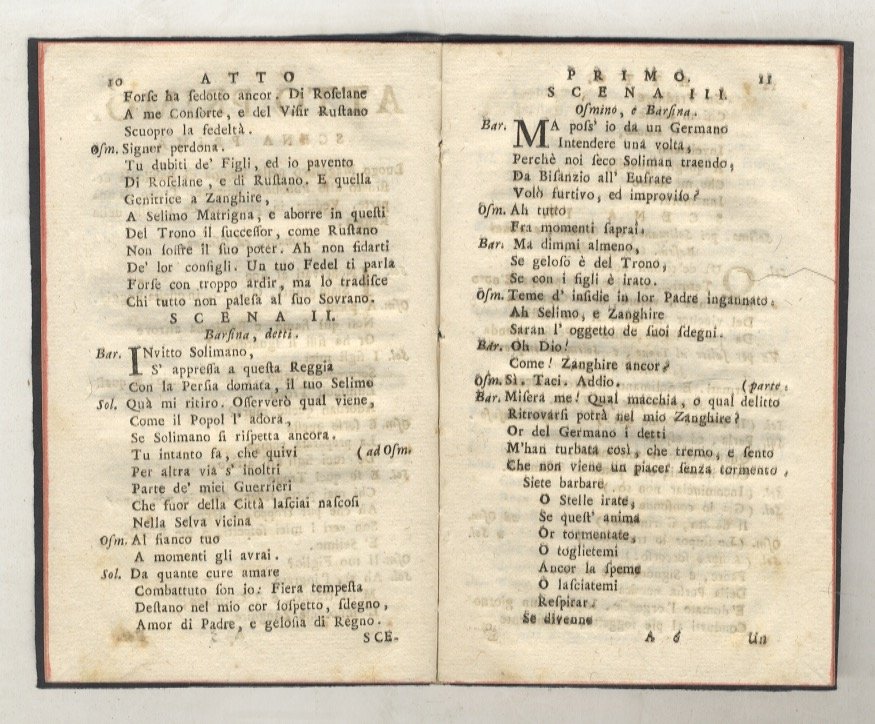 10 ATTO
Forſe ha ſedotto ancor. Di Roſelane
A me Conſorte, e del Viſir Ruſtano
Scuopro la fedeltà.
Oſm. Signer perdona.
Tu dubiti de' Figli, ed io pavento
Di Roſelane, e di Ruſtano. E quella
Genitrice a Zanghire,
A Selimo Matrigna, e aborre in queſti
Del Trono il ſucceſſor, come Ruſtano
Non ſoffre il ſuo poter. Ah non fidarti
De' lor conſigli. Un tuo Fedel ti parla
Forſe con troppo ardir, ma lo tradiſce
Chi tutto non paleſa al ſuo Sovrano.
SCENA II.
Barſina, detti.
Bar. INvitto Solimano,
S' appreſſa a queſta Reggia
Con la Perſia domata, il tuo Selimo
Sol. Quà mi ritiro. Oſſerverò qual viene,
Come il Popol l' adora,
Se Solimano ſi riſpetta ancora.
Tu intanto fa, che quivi (ad Oſm.
Per altra via s' inoltri
Parte de' miei Guerrieri
Che fuor della Città laſciai naſcoſi
Nella Selva vicina
Oſm. Al fianco tuo
A momenti gli avrai.
Sol. Da quante cure amare
Combattuto ſon io: Fiera tempeſta
Deſtano nel mio cor ſoſpetto, ſdegno,
Amor di Padre, e geloſia di Regno.
SCE-
PRIMO. 11
SCENA III.
Oſmino, e Barſina.
Bar. MA poſs' io da un Germano
Intendere una volta,
Perchè noi ſeco Soliman traendo,
Da Biſanzio all' Eufrate
Volò furtivo, ed improviſo?
Oſm. Ah tutto
Fra momenti ſaprai.
Bar. Ma dimmi almeno,
Se geloſo è del Trono,
Se con i figli è irato.
Oſm. Teme d' inſidie in lor Padre ingannato.
Ah Selimo, e Zanghire
Saran l' oggetto de ſuoi ſdegni.
Bar. Oh Dio!
Come! Zanghire ancor?
Oſm. Sì. Taci. Addio. (parte.
Bar. Miſera me! Qual macchia, o qual delitto
Ritrovarſi potrà nel mio Zanghire?
Or del Germano i detti
M'han turbata così, che tremo, e ſento
Che non viene un piacer ſenza tormento.
Siete barbare
O Stelle irate,
Se queſt' anima
Or tormentate,
O toglietemi
Ancor la ſpeme
O laſciatemi
Reſpirar.
Se divenne
A 6 Un